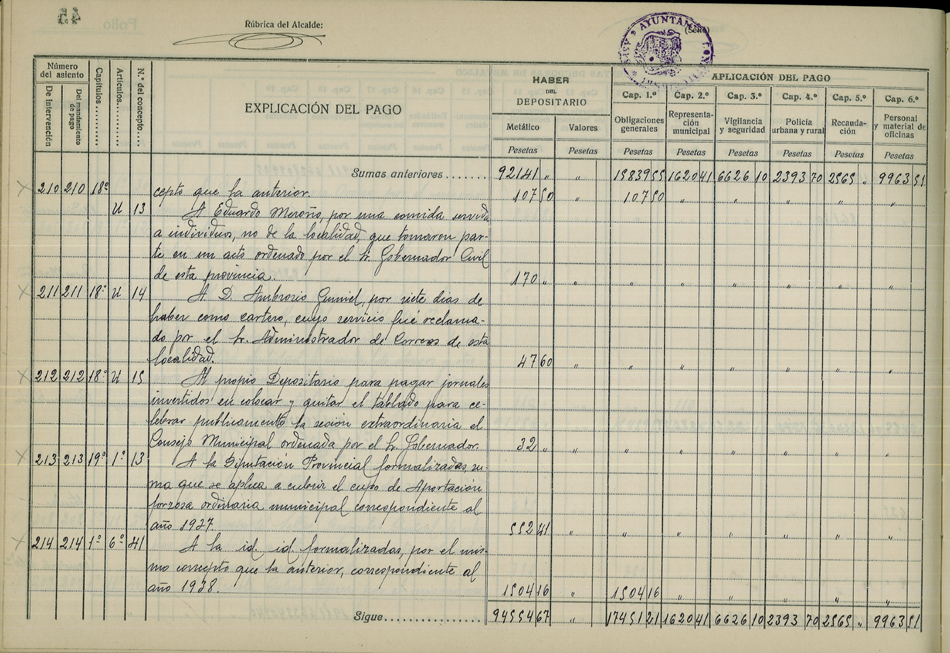 45
Folio
Rúbrica del Alcalde:
AYUNTAM
(Sello)
Número del asiento
De intervención
Del mandamiento de pago
Capítulos
Artículos
N.º del concepto
EXPLICACIÓN DEL PAGO
HABER DEL DEPOSITARIO
Metálico
Valores
Pesetas
Pesetas
APLICACIÓN DEL PAGO
Cap. 1.º Cap. 2.º Cap. 3.º Cap. 4.º Cap. 5.º Cap. 6.º
Obligaciones generales
Representación municipal
Vigilancia y seguridad
Policía urbana y rural
Recaudación
Personal y material de oficinas
Pesetas Pesetas Pesetas Pesetas Pesetas Pesetas
Sumas anteriores 92141 „ „ 15839 55 1620 41 6626 10 2393 70 2565 „ 9963 51
cepto que la anterior. 107 50 „ 107 50 „ „ „ „ „
210 210 18º U 13 A Eduardo Moroño, por una comida servida
a individuos, no de la localidad, que tomaron par-
te en un acto ordenado por el Sr. Gobernador Civil
de esta provincia. 170 „ „ „ „ „ „ „ „
211 211 18º U 14 A D. Ambrosio Gumiel, por siete dias de
haber como cartero, cuyo servicio fué reclama-
do por el Sr. Administrador de Correos de esta
localidad. 47 60 „ „ „ „ „ „ „
212 212 18º U 15 Al propio Depositario para pagar jornales
invertidos en colocar y quitar el tablado para ce-
lebrar publicamente la sesión extraordinaria el
Consejo Municipal ordenada por el Sr. Gobernador. 32 „ „ „ „ „ „ „ „
213 213 19º 1º 13 A la Diputación Provincial formalizadas, su-
ma que se aplica a cubrir el cupo de Aportación
forzosa ordinaria municipal correspondiente al
año 1937. 552 41 „ „ „ „ „ „ „
214 214 1º 6º 41 A la id. id. formalizadas, por el mis-
mo concepto que la anterior, correspondiente al
año 1938. 1504 16 „ 1504 16 „ „ „ „ „
Sigue 94554 67 „ 17451 21 1620 41 6626 10 2393 70 2565 „ 9963 51